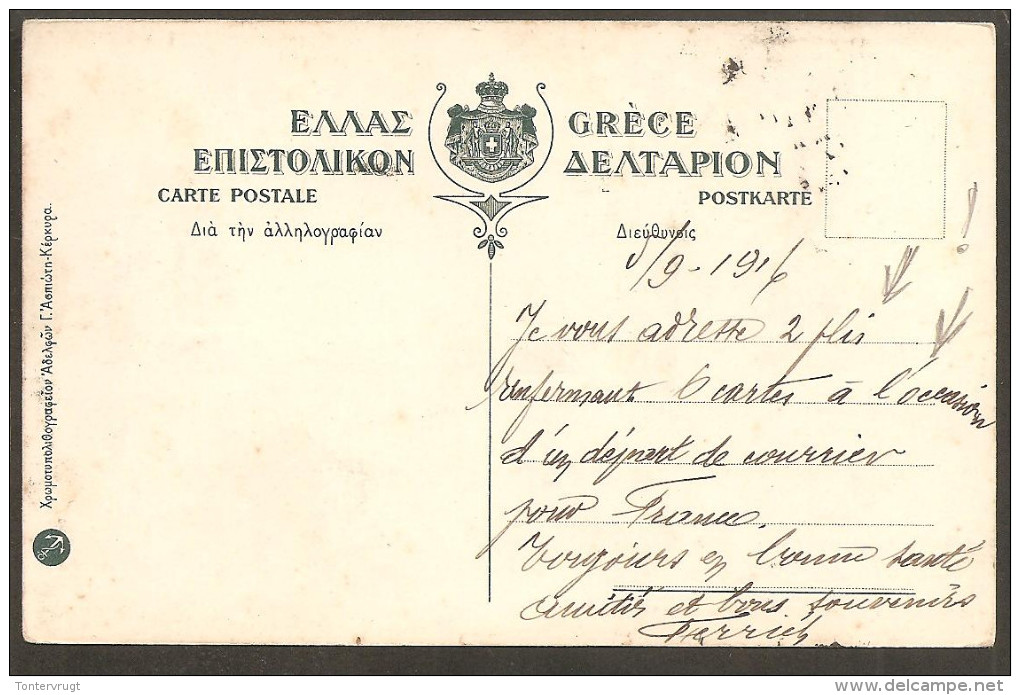 ΕΛΛΑΣ GRÈCE
ΕΠΙΣΤΟΛΙΚΟΝ ΔΕΛΤΑΡΙΟΝ
CARTE POSTALE POSTKARTE
Διὰ τὴν ἀλληλογραφίαν Διεύθυνσις
Χρωματυπολιθογραφεῖον Ἀδελφῶν Γ. Ἀσπιώτη-Κέρκυρα.
/9-1916
!
Je vous adresse 2 plis
renfermant 6 cartes à l'occasion
d'un départ de courrier
pour France.
Toujours en bonne santé
amitiés et bons souvenirs
Tontervrugt
delcampe.net